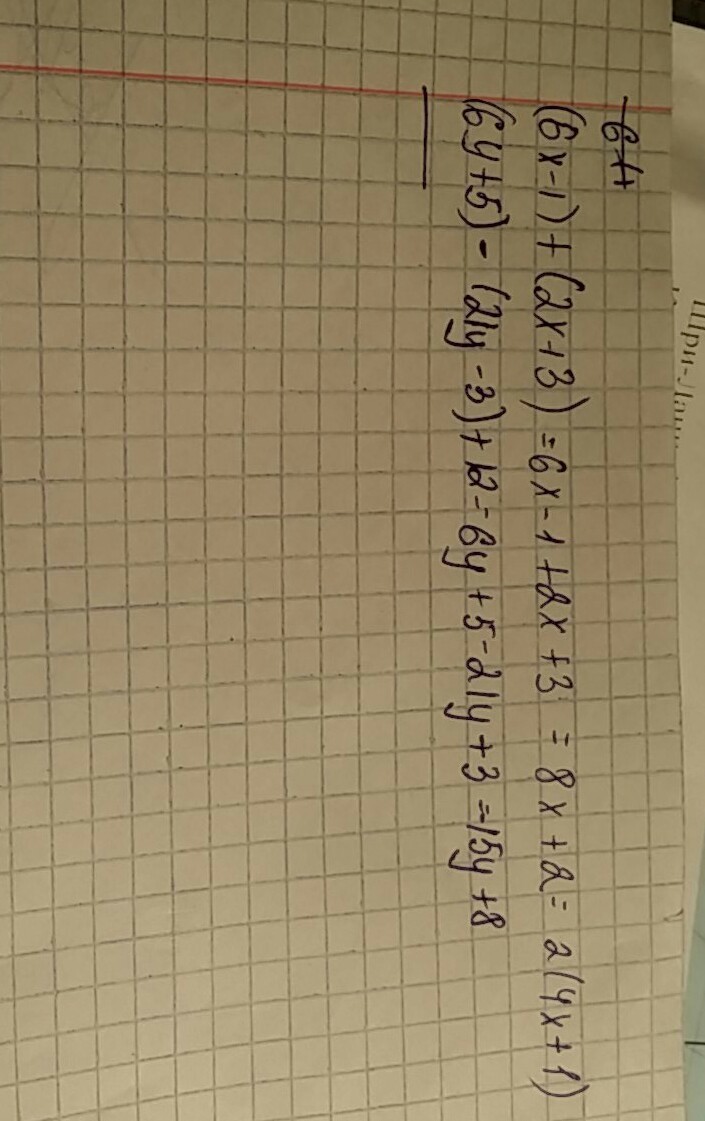 (6x-1)+(2x+3)=6x-1+2x+3=8x+2=2(4x+1)
(6y+5)-(21y-3)+12=6y+5-21y+3=-15y+8